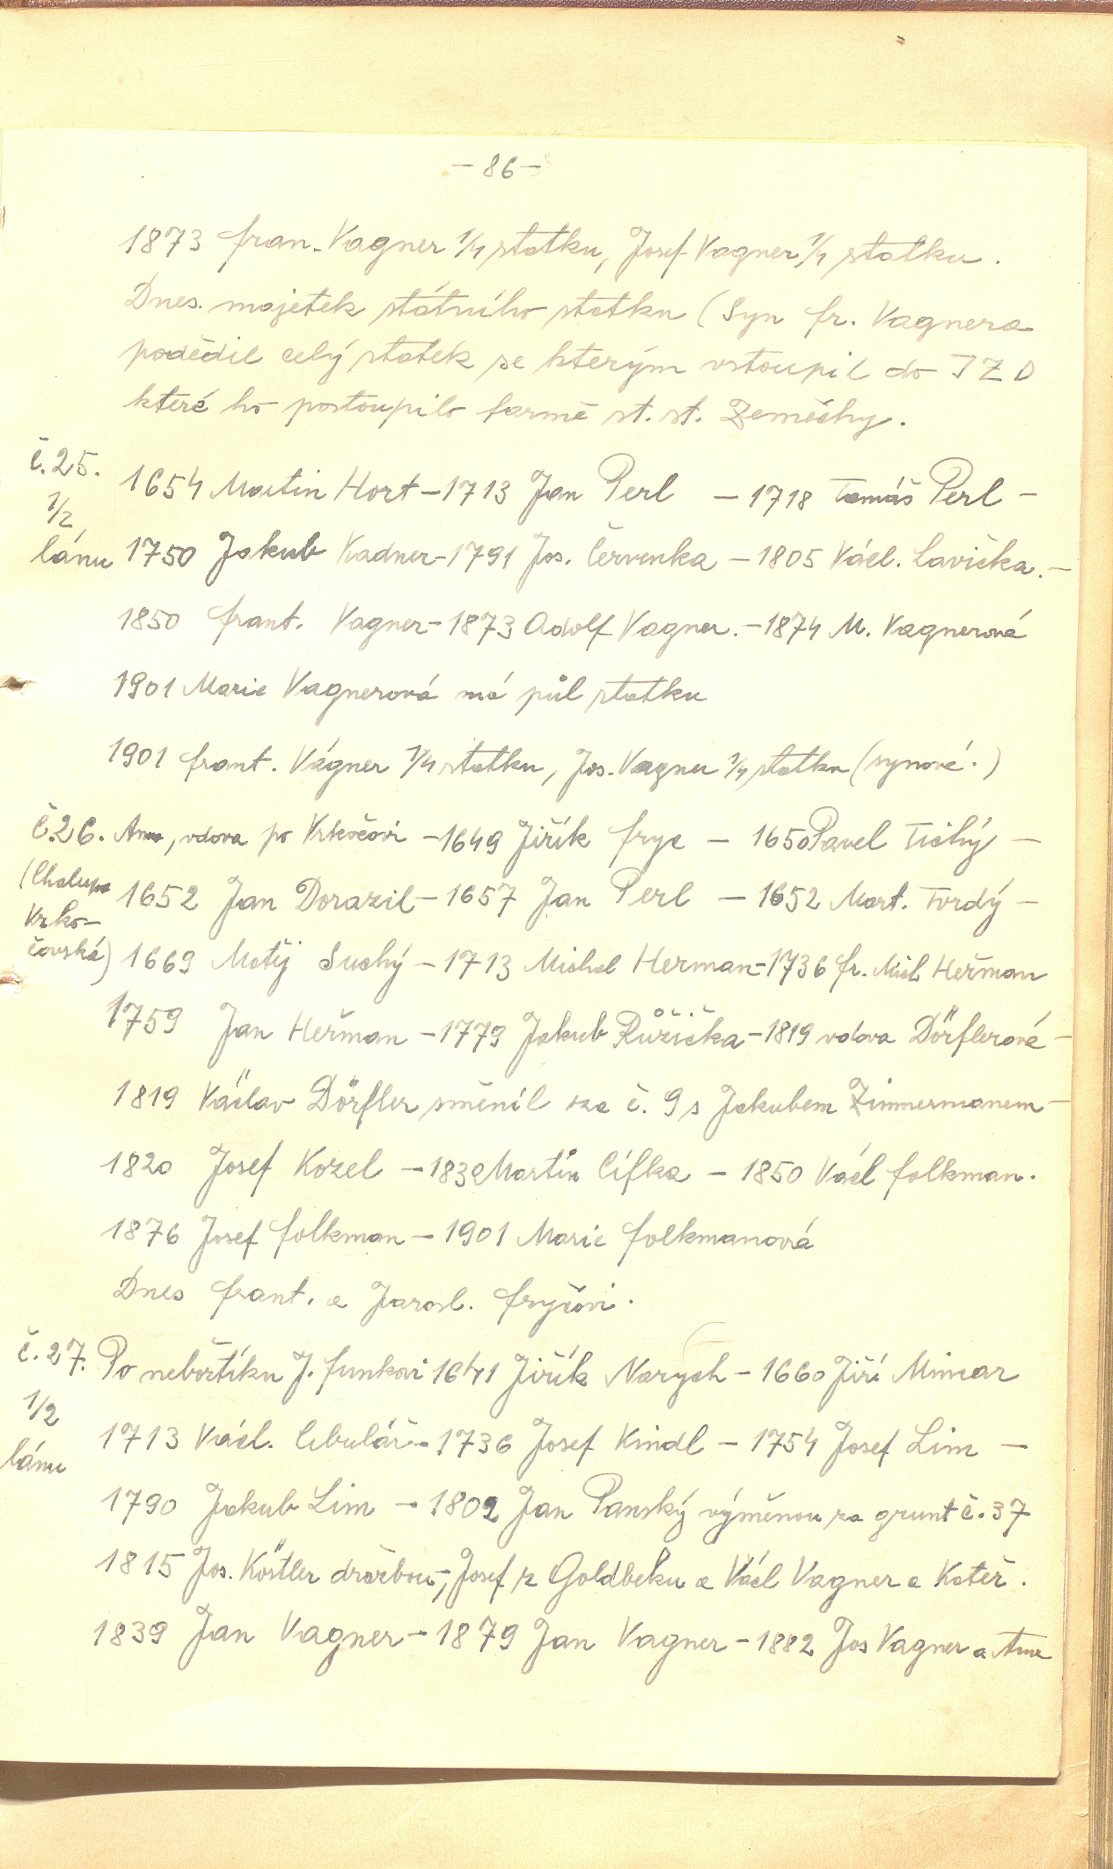 - 86 -
1873 Fran. Vagner 1/4 statku, Josef Vagner 1/4 statku.
Dnes. majetek státního statku (Syn Fr. Vagnera
podědil celý statek se kterým vstoupil do JZD
které ho postoupilo farmě st. st. Zeměchy.
č. 25. 1654 Martin Hort - 1713 Jan Perl - 1718 Tomáš Perl -
1/2
lánu 1750 Jakub Kadner - 1791 Jos. Červenka - 1805 Václ. Lavička. -
1850 Frant. Vagner - 1873 Adolf Vagner. - 1874 M. Vagnerová
1901 Marie Vagnerová má půl statku
1901 Frant. Vágner 1/4 statku, Jos. Vagner 1/4 statku (synové.)
č. 26. Anna, vdova po Vrkočovi - 1649 Jiřík Fryc - 1650 Pavel Tichý -
(Chalupa 1652 Jan Dorazil - 1657 Jan Perl - 1652 Mart. Tvrdý -
Vrko-
čovská) 1669 Matěj Suchý - 1713 Michal Heřman - 1736 Fr. Mich. Heřman
1759 Jan Heřman - 1779 Jakub Růžička - 1819 vdova Dörflerová -
1819 Václav Dörfler směnil za č. 9 s Jakubem Zimmermanem -
1820 Josef Kozel - 1839 Martin Cífka - 1850 Václ Folkman.
1876 Josef Folkman - 1901 Marie Folkmanová
Dnes Frant. a Jarosl. Fryčovi.
č. 27. Po nebožtíku J. Funkovi 1641 Jiřík Narych - 1660 Jiří Minar
1/2
lánu 1713 Václ. Cibulář - 1736 Josef Kindl - 1754 Josef Lim -
1790 Jakub Lim - 1802 Jan Panský výměnou za grunt č. 37
1815 Jos. Köstler dražbou -, Josef z Goldbeku a Václ Vagner a Kateř.
1839 Jan Vagner - 1879 Jan Vagner - 1882 Jos Vagner a Anna